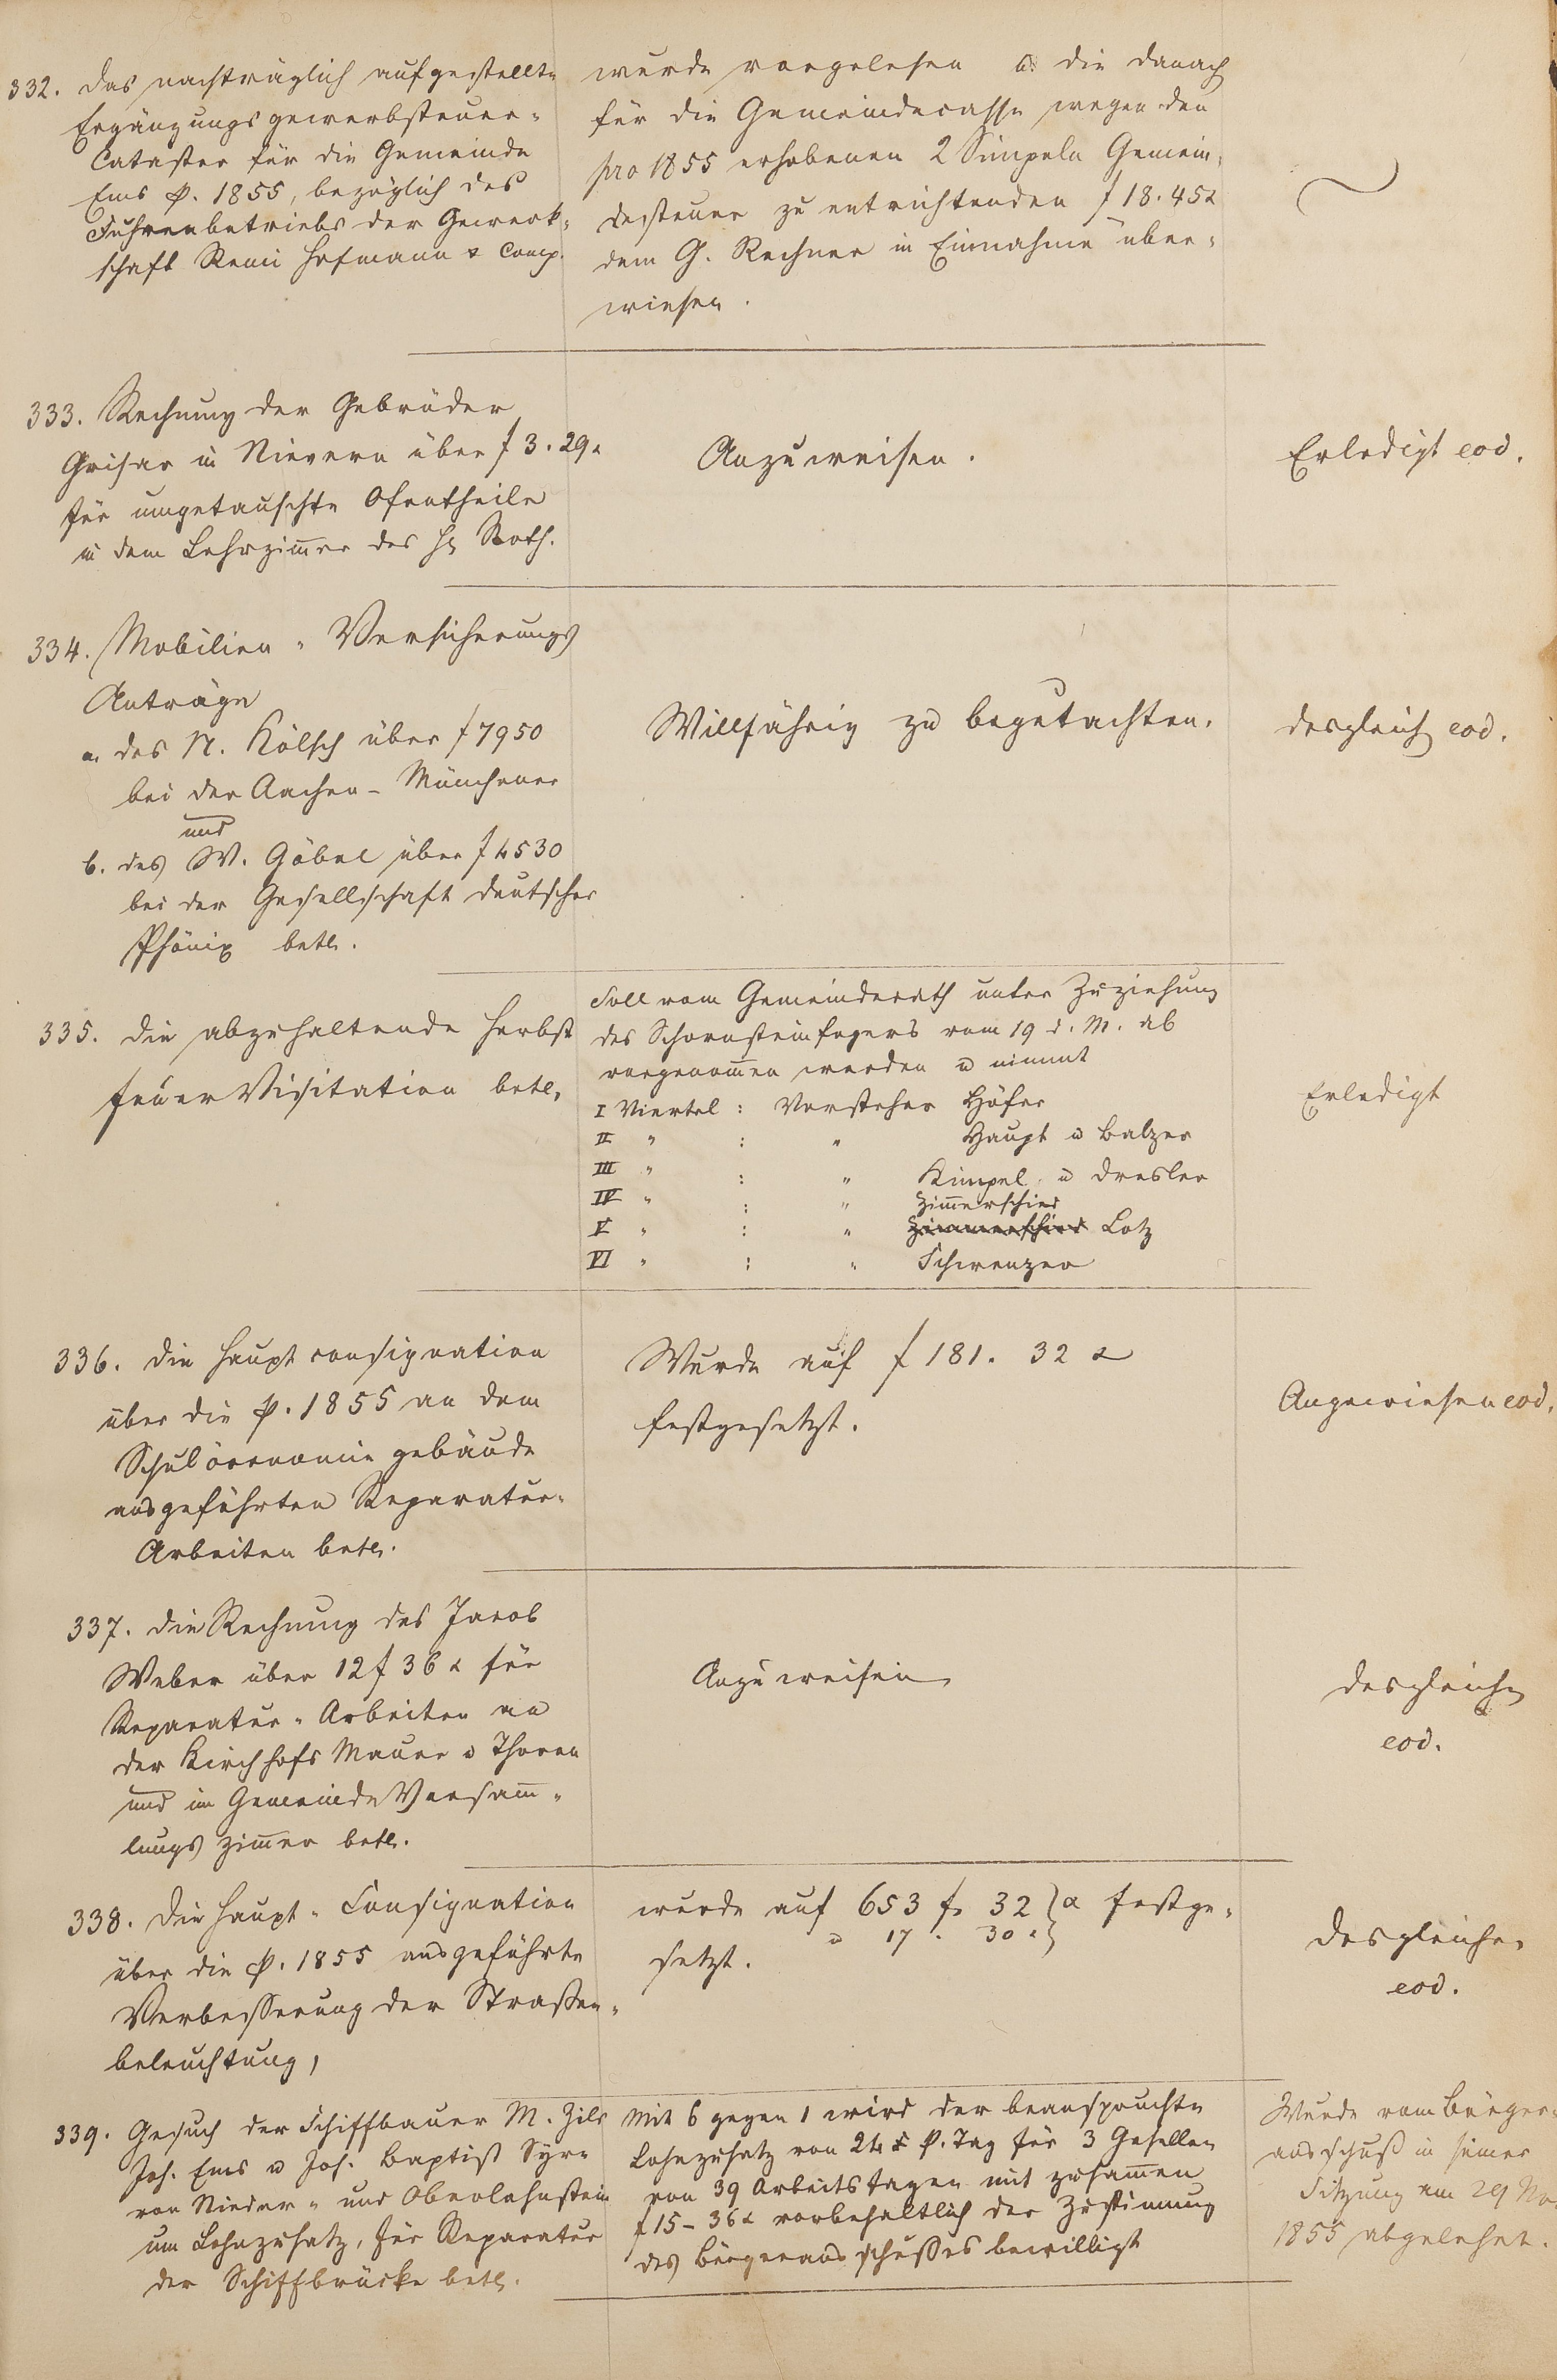 332. Das nachträglich aufgestellte
Ergänzungsgewerbsteuer-
Cataster für die Gemeinde
Ems p. 1855, bezüglich des
Fuhrenbetriebs der Gewerk-
schaft Remi Hofmann & Comp.
wurde vorgelesen u. die danach
für die Gemeindecasse wegen den
pro 1855 erhobenen 2 Simpeln Gemein-
desteuer zu entrichtenden f 18. 45 x
dem G. Rechner in Einnahme über-
wiesen.
333. Rechnung der Gebrüder
Grisar in Nievern über f 3. 29 x
für umgetauschte Ofentheile
in dem Lehrzim̅er des H. Roth.
Anzuweisen.
Erledigt eod.
334. Mobilien-Versicherungs
Anträge
a. des N. Kölsch über f 7950
bei der Aachen-Münchener
und
b. des W. Göbel über f 4530
bei der Gesellschaft deutscher
Phönix betr.
Willfährig zu begutachten.
desgleich eod.
335. Die abzuhaltende Herbst
Feuer Visitation betr.
Soll vom Gemeinderath unter Zuziehung
des Schornsteinfegers vom 19 d. M. ab
vorgenom̅en werden u nimmt
I Viertel : Vorsteher Höfer
II " : " Haupt u Balzer
III " : " Kimpel u Dresler
IV " : " Zim̅erschied
V " : " Zimmerschied Lotz
VI " : " Schwenzer
Erledigt
336. Die Hauptconsignation
über die p. 1855 an dem
Schulöconomie gebäude
ausgeführten Reparatur-
Arbeiten betr.
Wurde auf f 181. 32 x
festgesetzt.
Angewiesen eod.
337. Die Rechnung des Jacob
Weber über 12 f 36 x für
Reparatur-Arbeiten an
der Kirchhofs Mauer u Thoren
und im Gemeinde Versam̅-
lungs zim̅er betr.
Anzuweisen
desgleichen
eod.
338. Die Haupt-Consignation
über die p. 1855 ausgeführte
Verbesserung der Straßen-
beleuchtung,
wurde auf 653 f. 32 } x festge-
u 17. 30 x }
setzt.
desgleichen
eod.
339. Gesuch der Schiffbauer M. Zils
Joh. Ems u Joh. Baptist Syre
von Nieder- und Oberlahnstein
um Lohnzusatz, für Reparatur
der Schiffbrücke betr.
Mit 6 gegen 1 wird der beanspruchte
Lohnzusatz von 24 x p. Tag für 3 Gesellen
von 39 Arbeitstagen mit zusam̅en
f 15 - 36 x vorbehaltlich der Zustim̅ung
des Bürgerausschußes bewilligt
Wurde vom Bürger-
ausschuß in seiner
Sitzung am 29 Nov.
1855 abgelehnt.